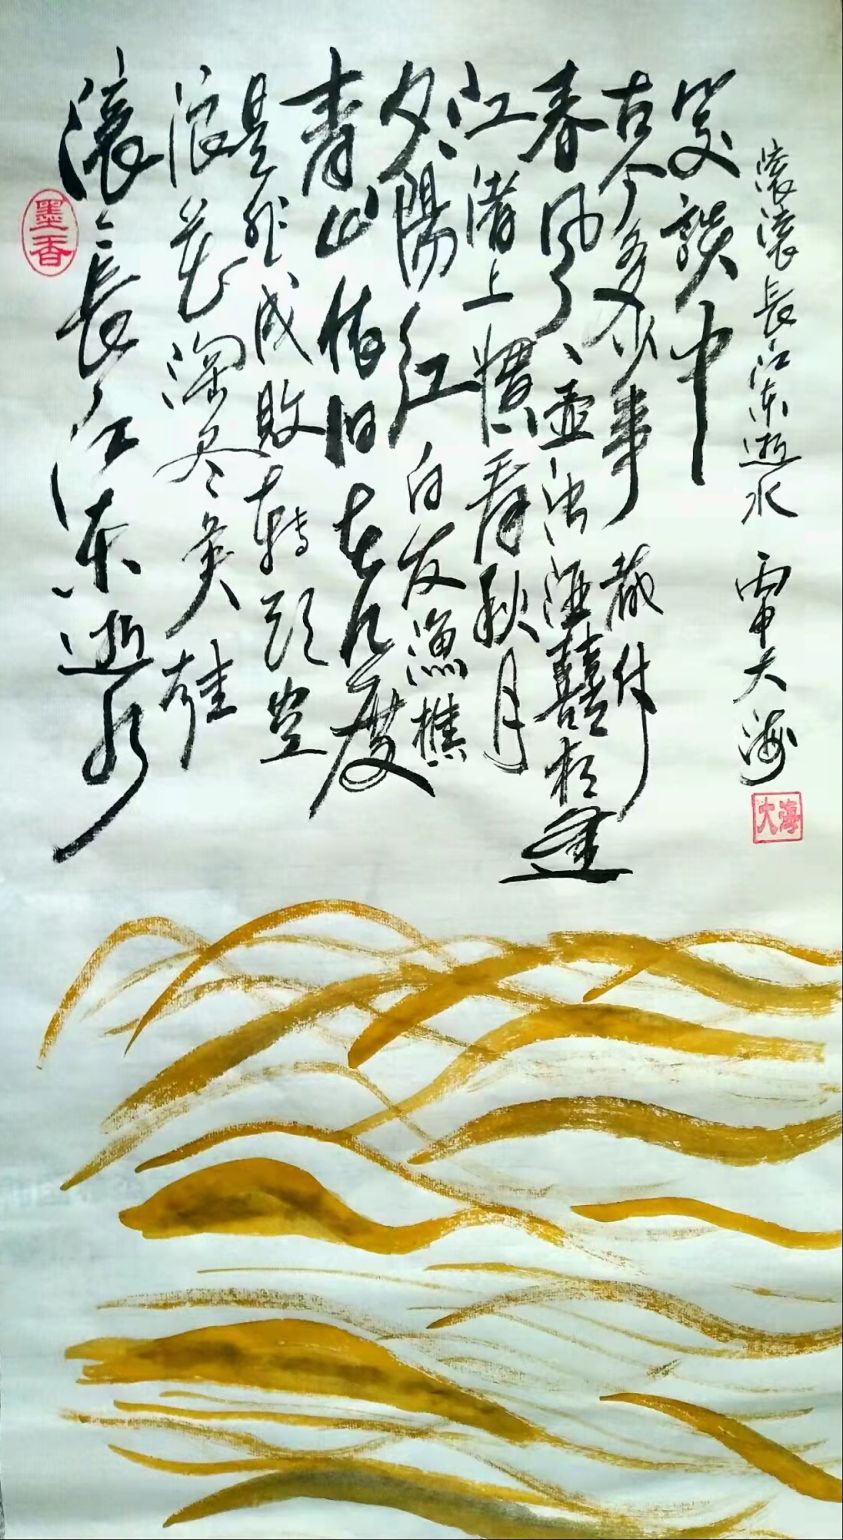 墨香
滚〻長江东逝水
浪花淘尽英雄
是非成敗轉头空
青山依旧在几度
夕陽红 白发漁樵
江渚上慣看秋月
春风一壶浊酒囍相逢
古今多少事 都付
笑談中
滚滚長江东逝水 丙申大海
大海